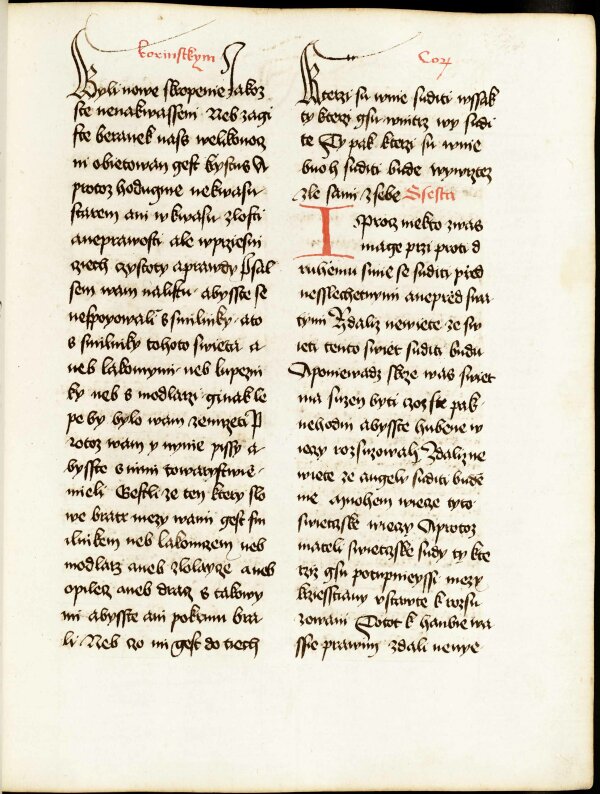 korinstkym I
Byli nowe skropenie jakoz
ste nenakwasseni Neb zagi
ste beranek nass welikonocz
ni obietowan gest krystus A
protoz hodugme ne kwasu
starem ani w kwasu zlosti
a neprawosti ale w prziesni
cziech czystoty a prawdy Psal
sem wam na listu abysste se
nesspoyowali s smilniky ato
s smilniky tohoto swieta a
neb lakomymi neb lupezni
ky neb s modlarzi ginak le
pe by bylo wam zemrzeti P
rotoz wam y nynie pissy a
bysste s nimi towarzystwie
mieli Gestli ze ten ktery slo
we bratr mezy wami gest smi
lnikem neb lakomczem neb
modlarz aneb zlolaycze aneb
opilecz aneb dracz s takowy
mi abysste ani pokrmu bra
li Neb czo mi gest do tiech
Cor
Kterzi su wnie suditi wssak
ty kterzi gsu wnitrz wy sudi
te Ty pak kterzi su wnie
buoh suditi bude wywrztez
zle sami z sebe Ssesta
I Procz niekto z was
mage przi proti d
ruhemu smie se suditi przed
nesslechetnymi a neprzed swa
tymi Zdaliz newiete ze sw
ieti tento swiet suditi budu
A poniewadz skrze was swiet
ma suzen byti czoz ste pak
nehodni abysste hubene w
ieczy rozsuzowali Zdaliz ne
wiete ze angely suditi bude
me czymohem wiecze tyto
swietzske wieczy A protoz
mateli swietzske sudy ty kte
rziz gsu potupnieyssi mezy
krziesstiany ustawte k rozsu
zowani Totot k hanbie wa
ssie prawim zdali nenye